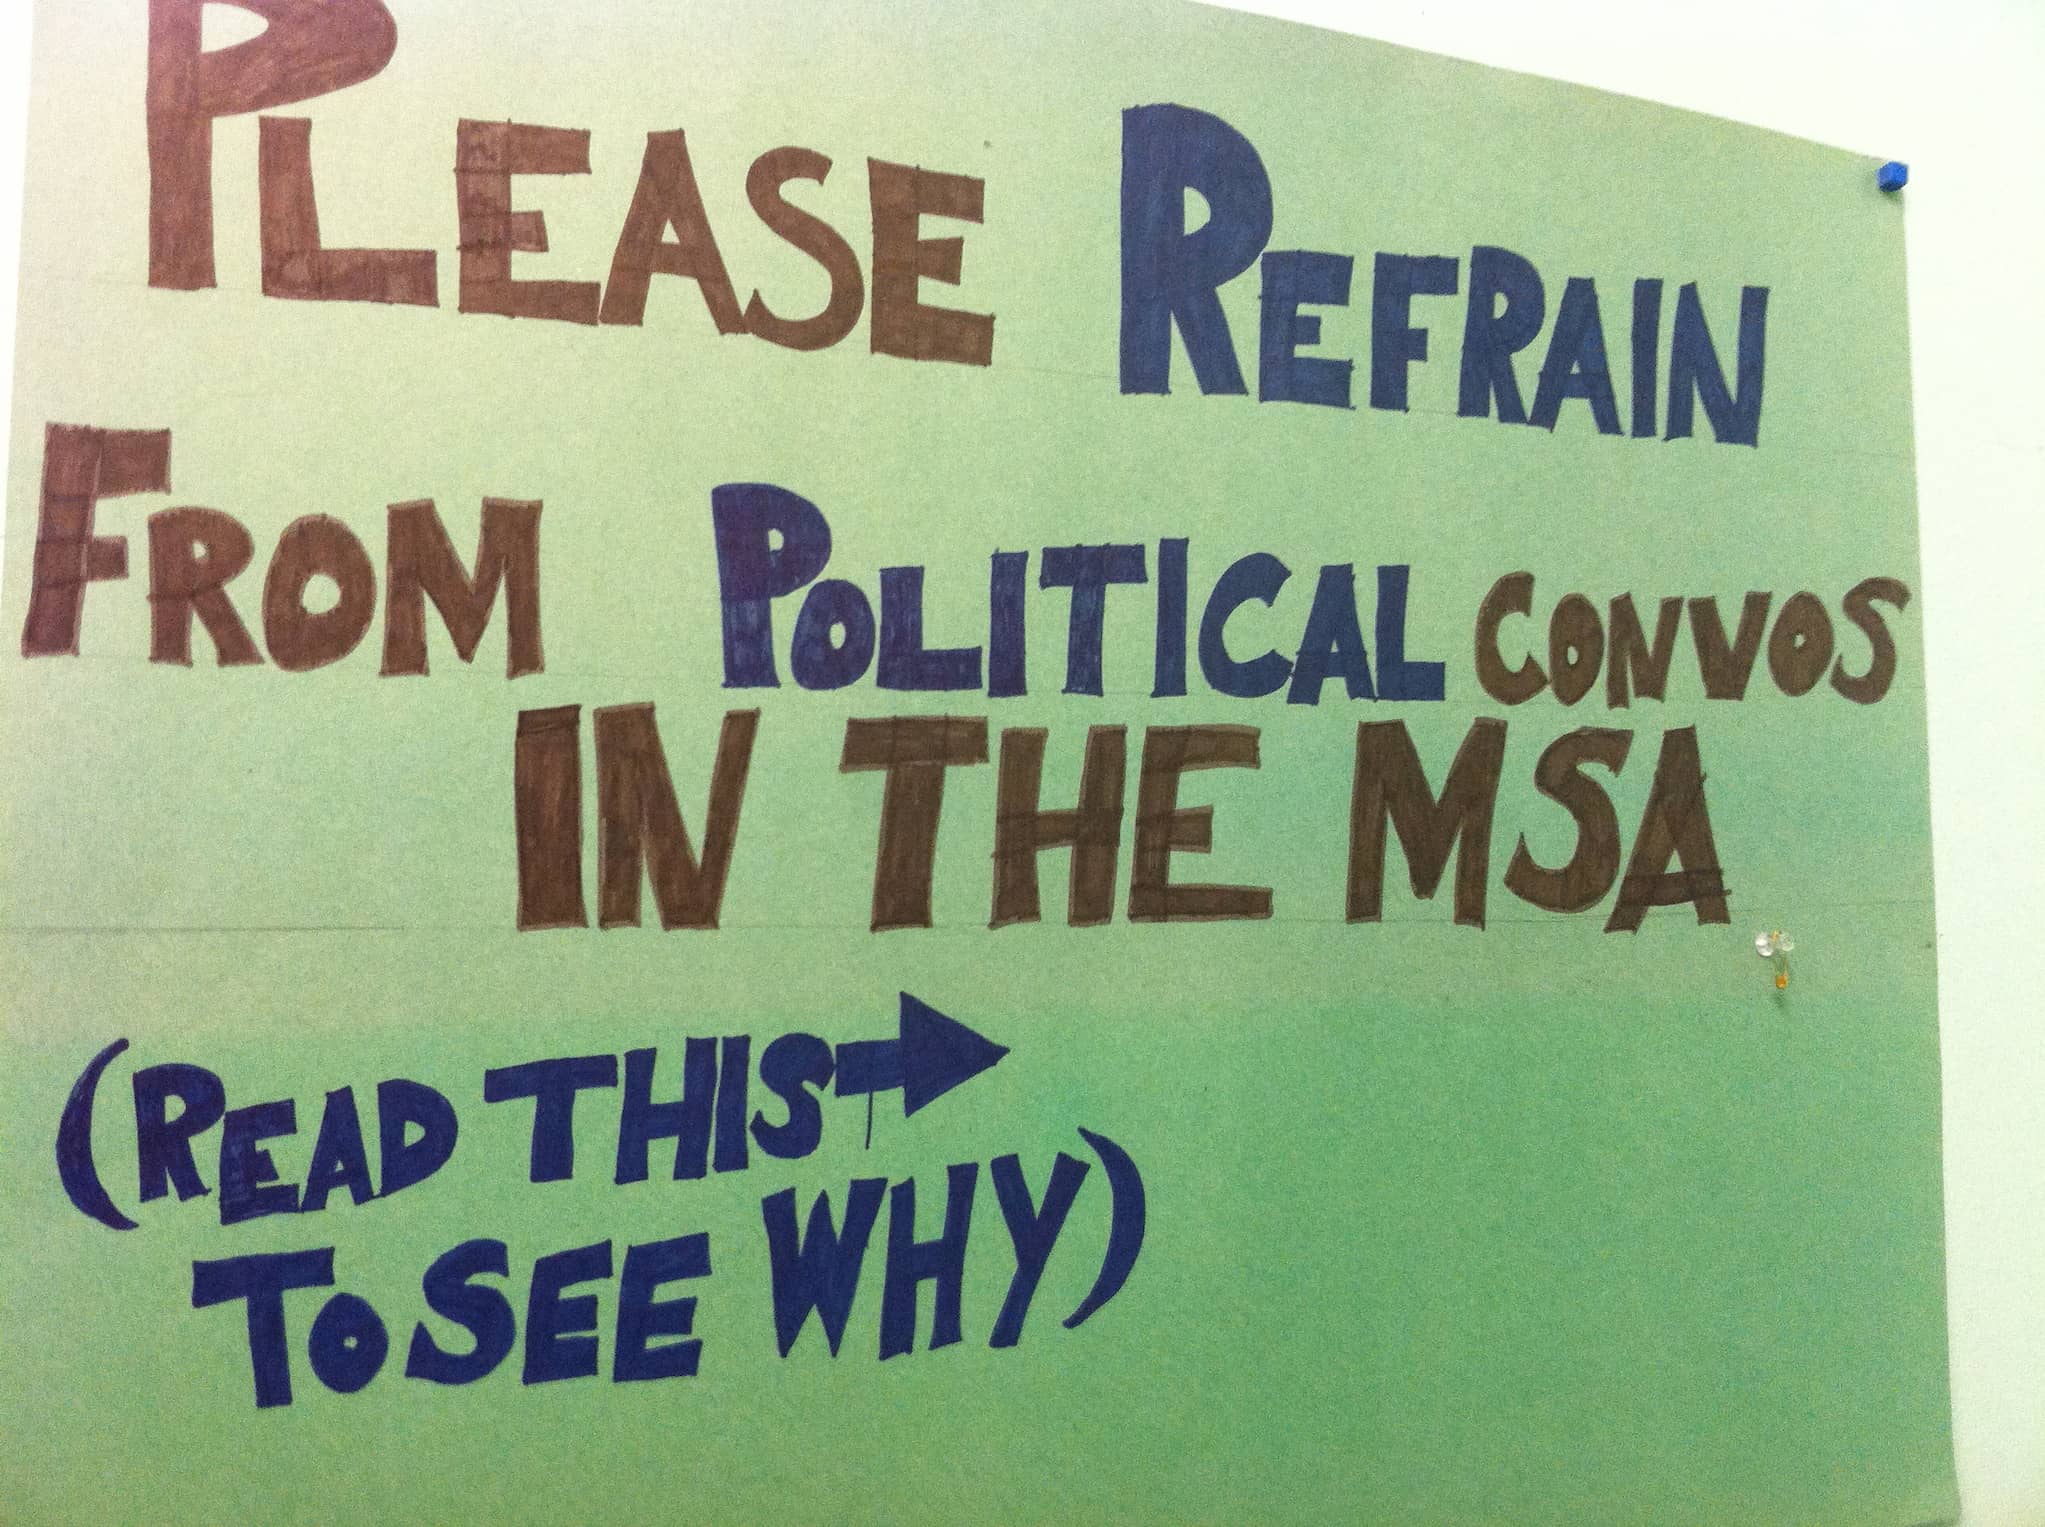 PLEASE REFRAIN
FROM POLITICAL CONVOS
IN THE MSA
(READ THIS→
TO SEE WHY)